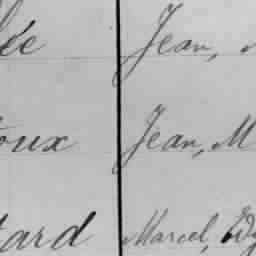 ée Jean,
oux Jean, M
ard Marcel,